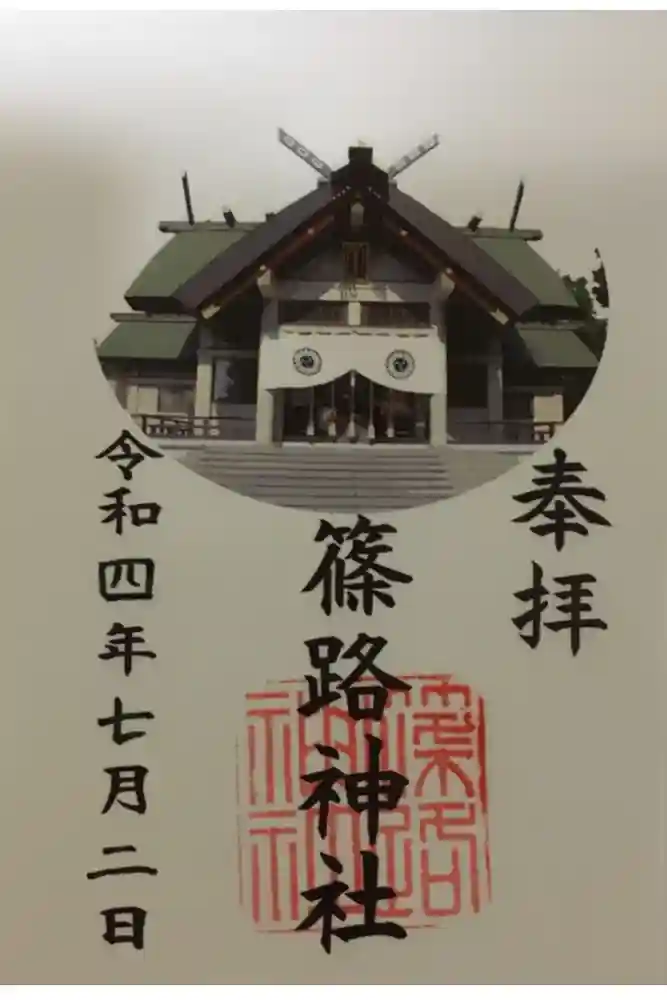 奉拝
篠路神社
令和四年七月二日
篠路
神社